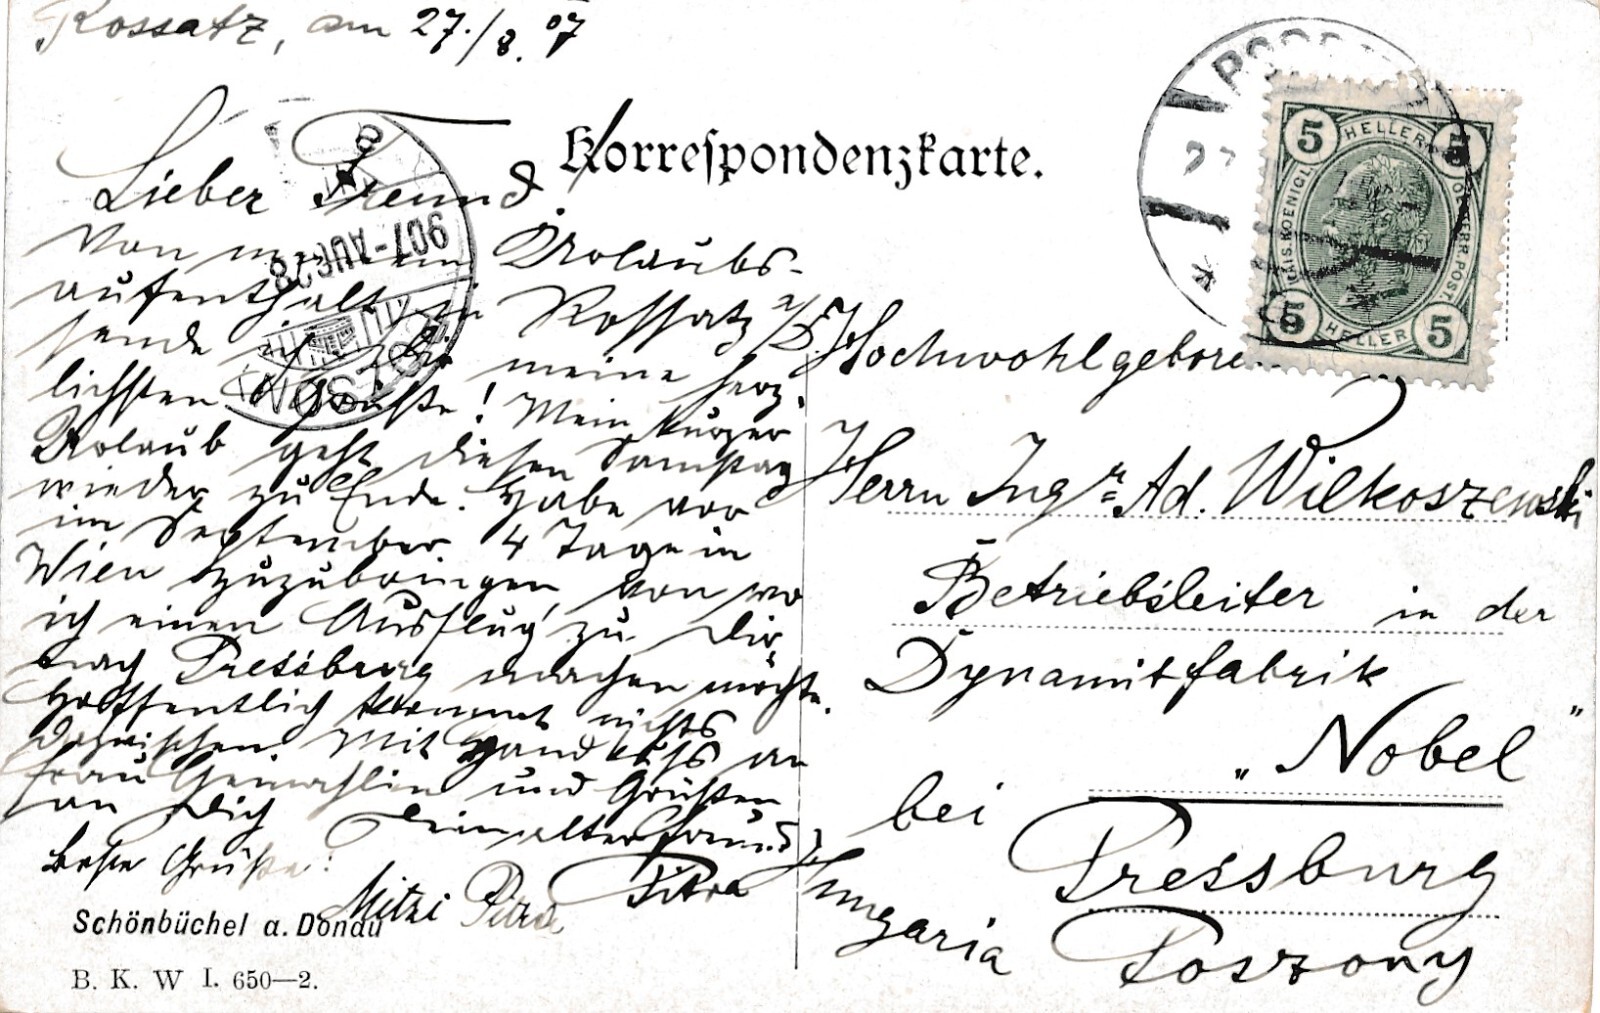 Rossatz, am 27./8. 07
Korrespondenzkarte.
Lieber Freund!
Von meinem Urlaubs-
aufenthalt in Rossatz a/D
sende ich Dir meine herz-
lichsten Grüße! Mein kurzer
Urlaub geht diesen Samstag
wieder zu Ende. Habe vor
im September 4 Tage in
Wien zuzubringen, von wo
ich einen Ausflug zu Dir
nach Pressburg machen möchte.
Hoffentlich kommt nichts
dazwischen. Mit Handkuss an
Frau Gemahlin und Grüßen
an Dich Dein alter Freund
Pitra
Beste Grüße!
Mitzi Pitra
Schönbüchel a. Donau
B. K. W I. 650—2.
5 HELLER 5
KAIS. KOENIGL. OESTERR. POST.
5 HELLER 5
907-AUG 28
POZSONY
Hochwohlgeboren
Herrn Ingr Ad. Wilkoszewski
Betriebsleiter in der
Dynamitfabrik
„Nobel”
bei Pressburg
Pozsony
Hungaria